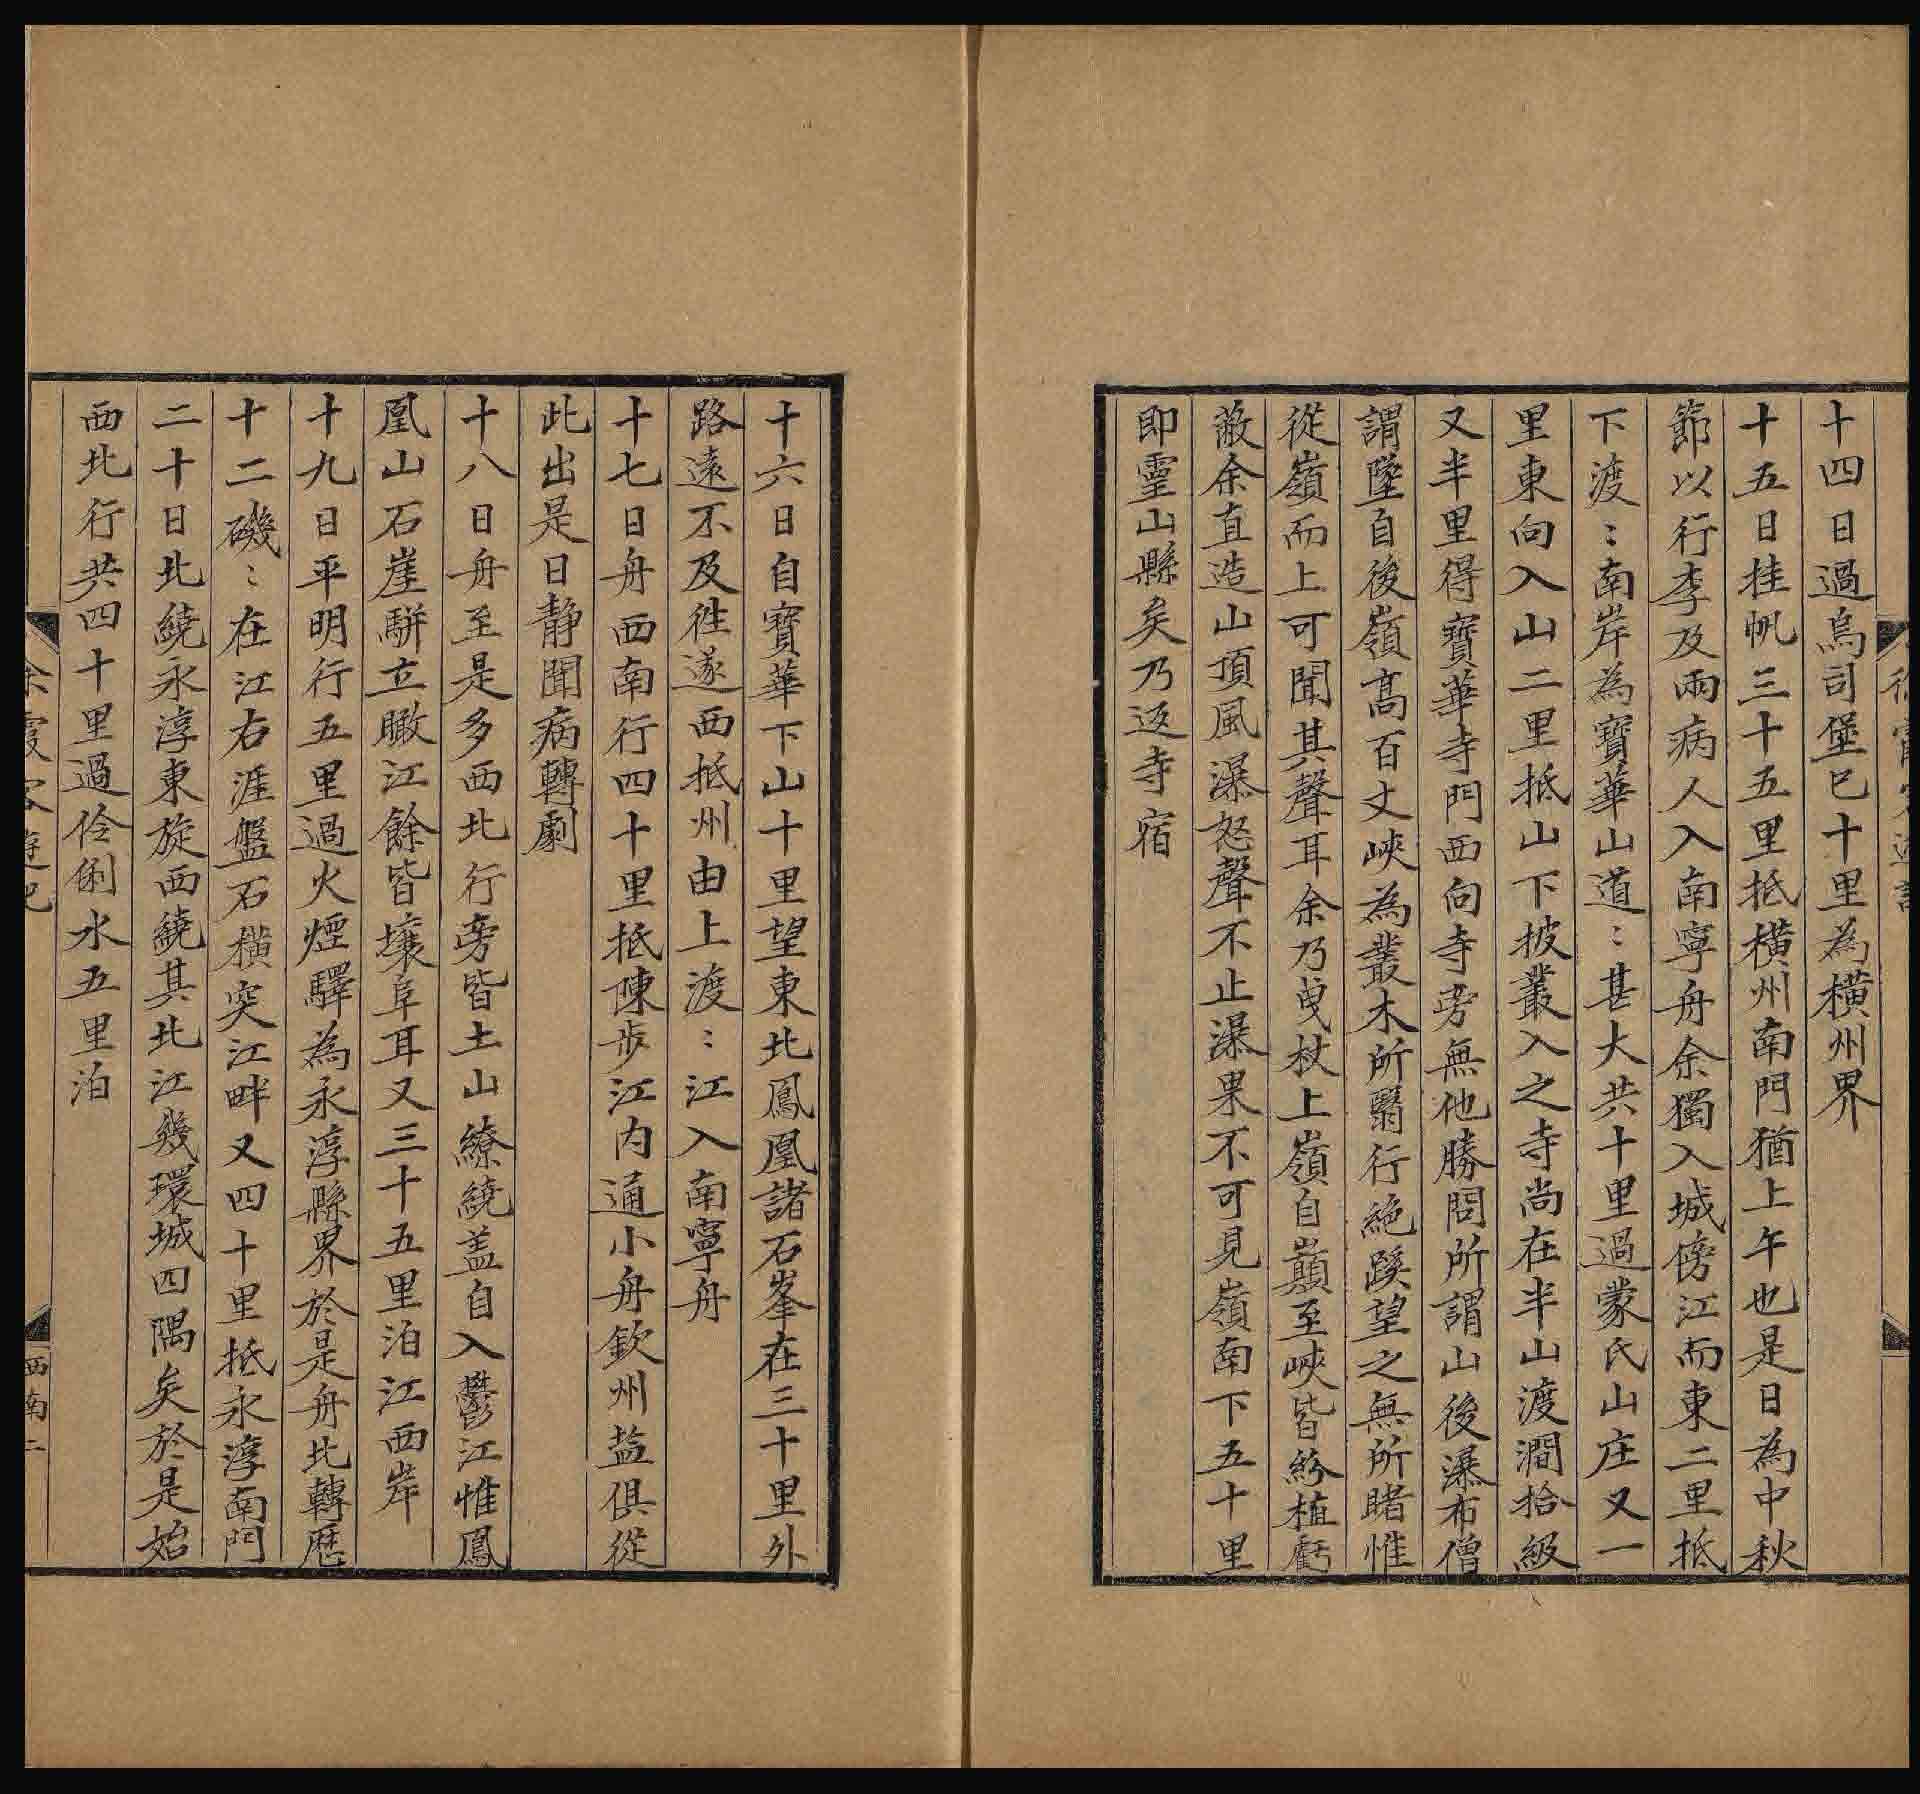 十四日過烏司堡已十里為橫州界
十五日挂帆三十五里抵橫州南門猶上午也是日為中秋
節以行李及兩病人入南寧舟余獨入城傍江而東二里抵
下渡〻南岸為寶華山道〻甚大共十里過蒙氏山庄又一
里東向入山二里抵山下披叢入之寺尚在半山渡澗拾級
又半里得寶華寺門西向寺旁無他勝問所謂山後瀑布僧
謂墜自後嶺高百丈峽為叢木所翳行絶蹊望之無所睹惟
從嶺而上可聞其聲耳余乃曳杖上嶺自巔至峽皆紛植虧
蔽余直造山頂風瀑怒聲不止瀑果不可見嶺南下五十里
即靈山縣矣乃返寺宿
十六日自寶華下山十里望東北鳳凰諸石峯在三十里外
路遠不及徃遂西抵州由上渡〻江入南寧舟
十七日舟西南行四十里抵陳步江内通小舟欽州盐俱從
此出是日静聞病轉劇
十八日舟至是多西北行旁皆土山繚繞盖自入鬱江惟鳳
凰山石崖駢立瞰江餘皆壤阜耳又三十五里泊江西岸
十九日平明行五里過火煙驛為永淳縣界於是舟北轉歴
十二磯〻在江右涯盤石橫突江畔又四十里抵永淳南門
二十日北繞永淳東旋西繞其北江幾環城四隅矣於是始
西北行共四十里過伶俐水五里泊
徐霞客遊記
西南二